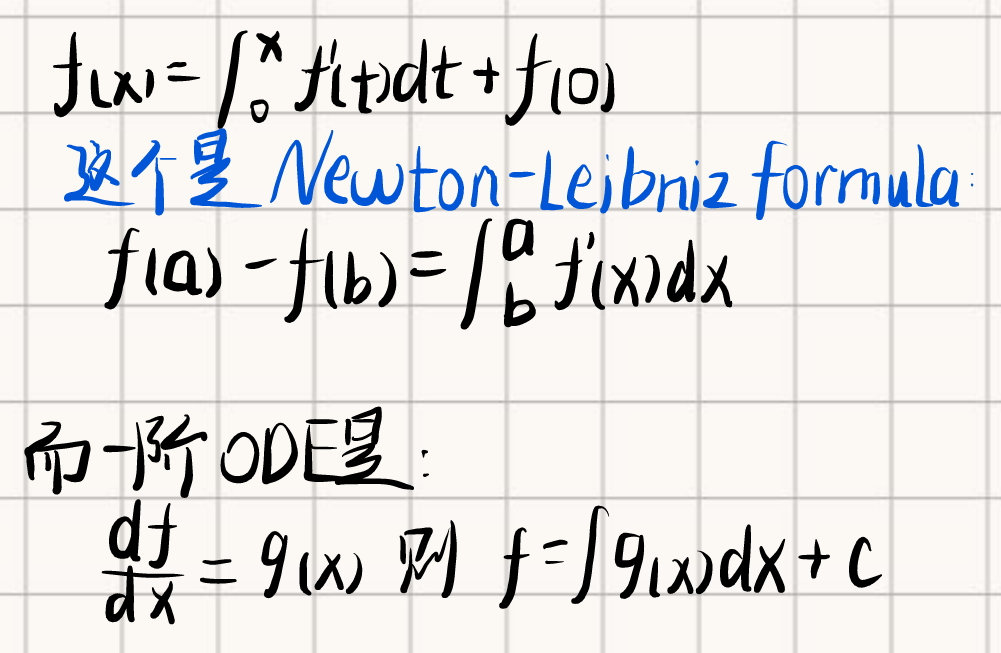 f(x) = ∫₀ˣ f'(t)dt + f(0)
这个是 Newton-Leibniz formula:
f(a) - f(b) = ∫_b^a f'(x)dx
而一阶ODE是:
df/dx = g(x) 则 f = ∫g(x)dx + C